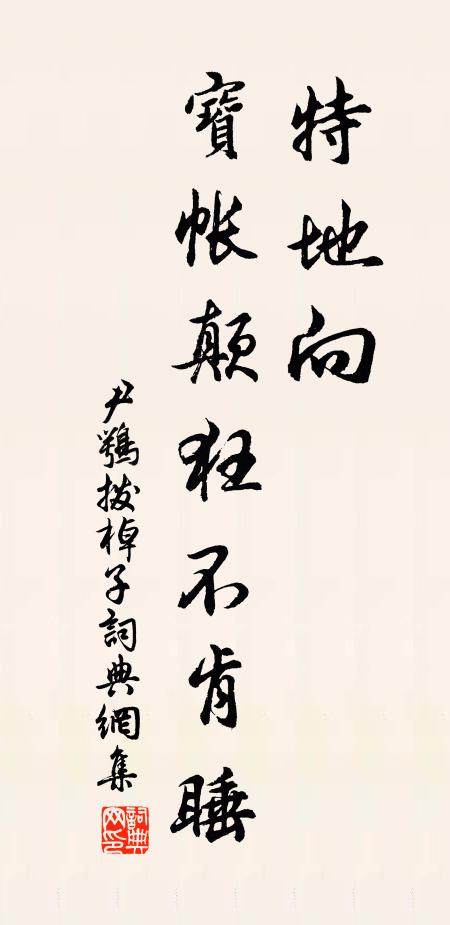 特地向
寶帳顛狂不肯睡
尹鶚撥棹子詞典網集
詞典網印